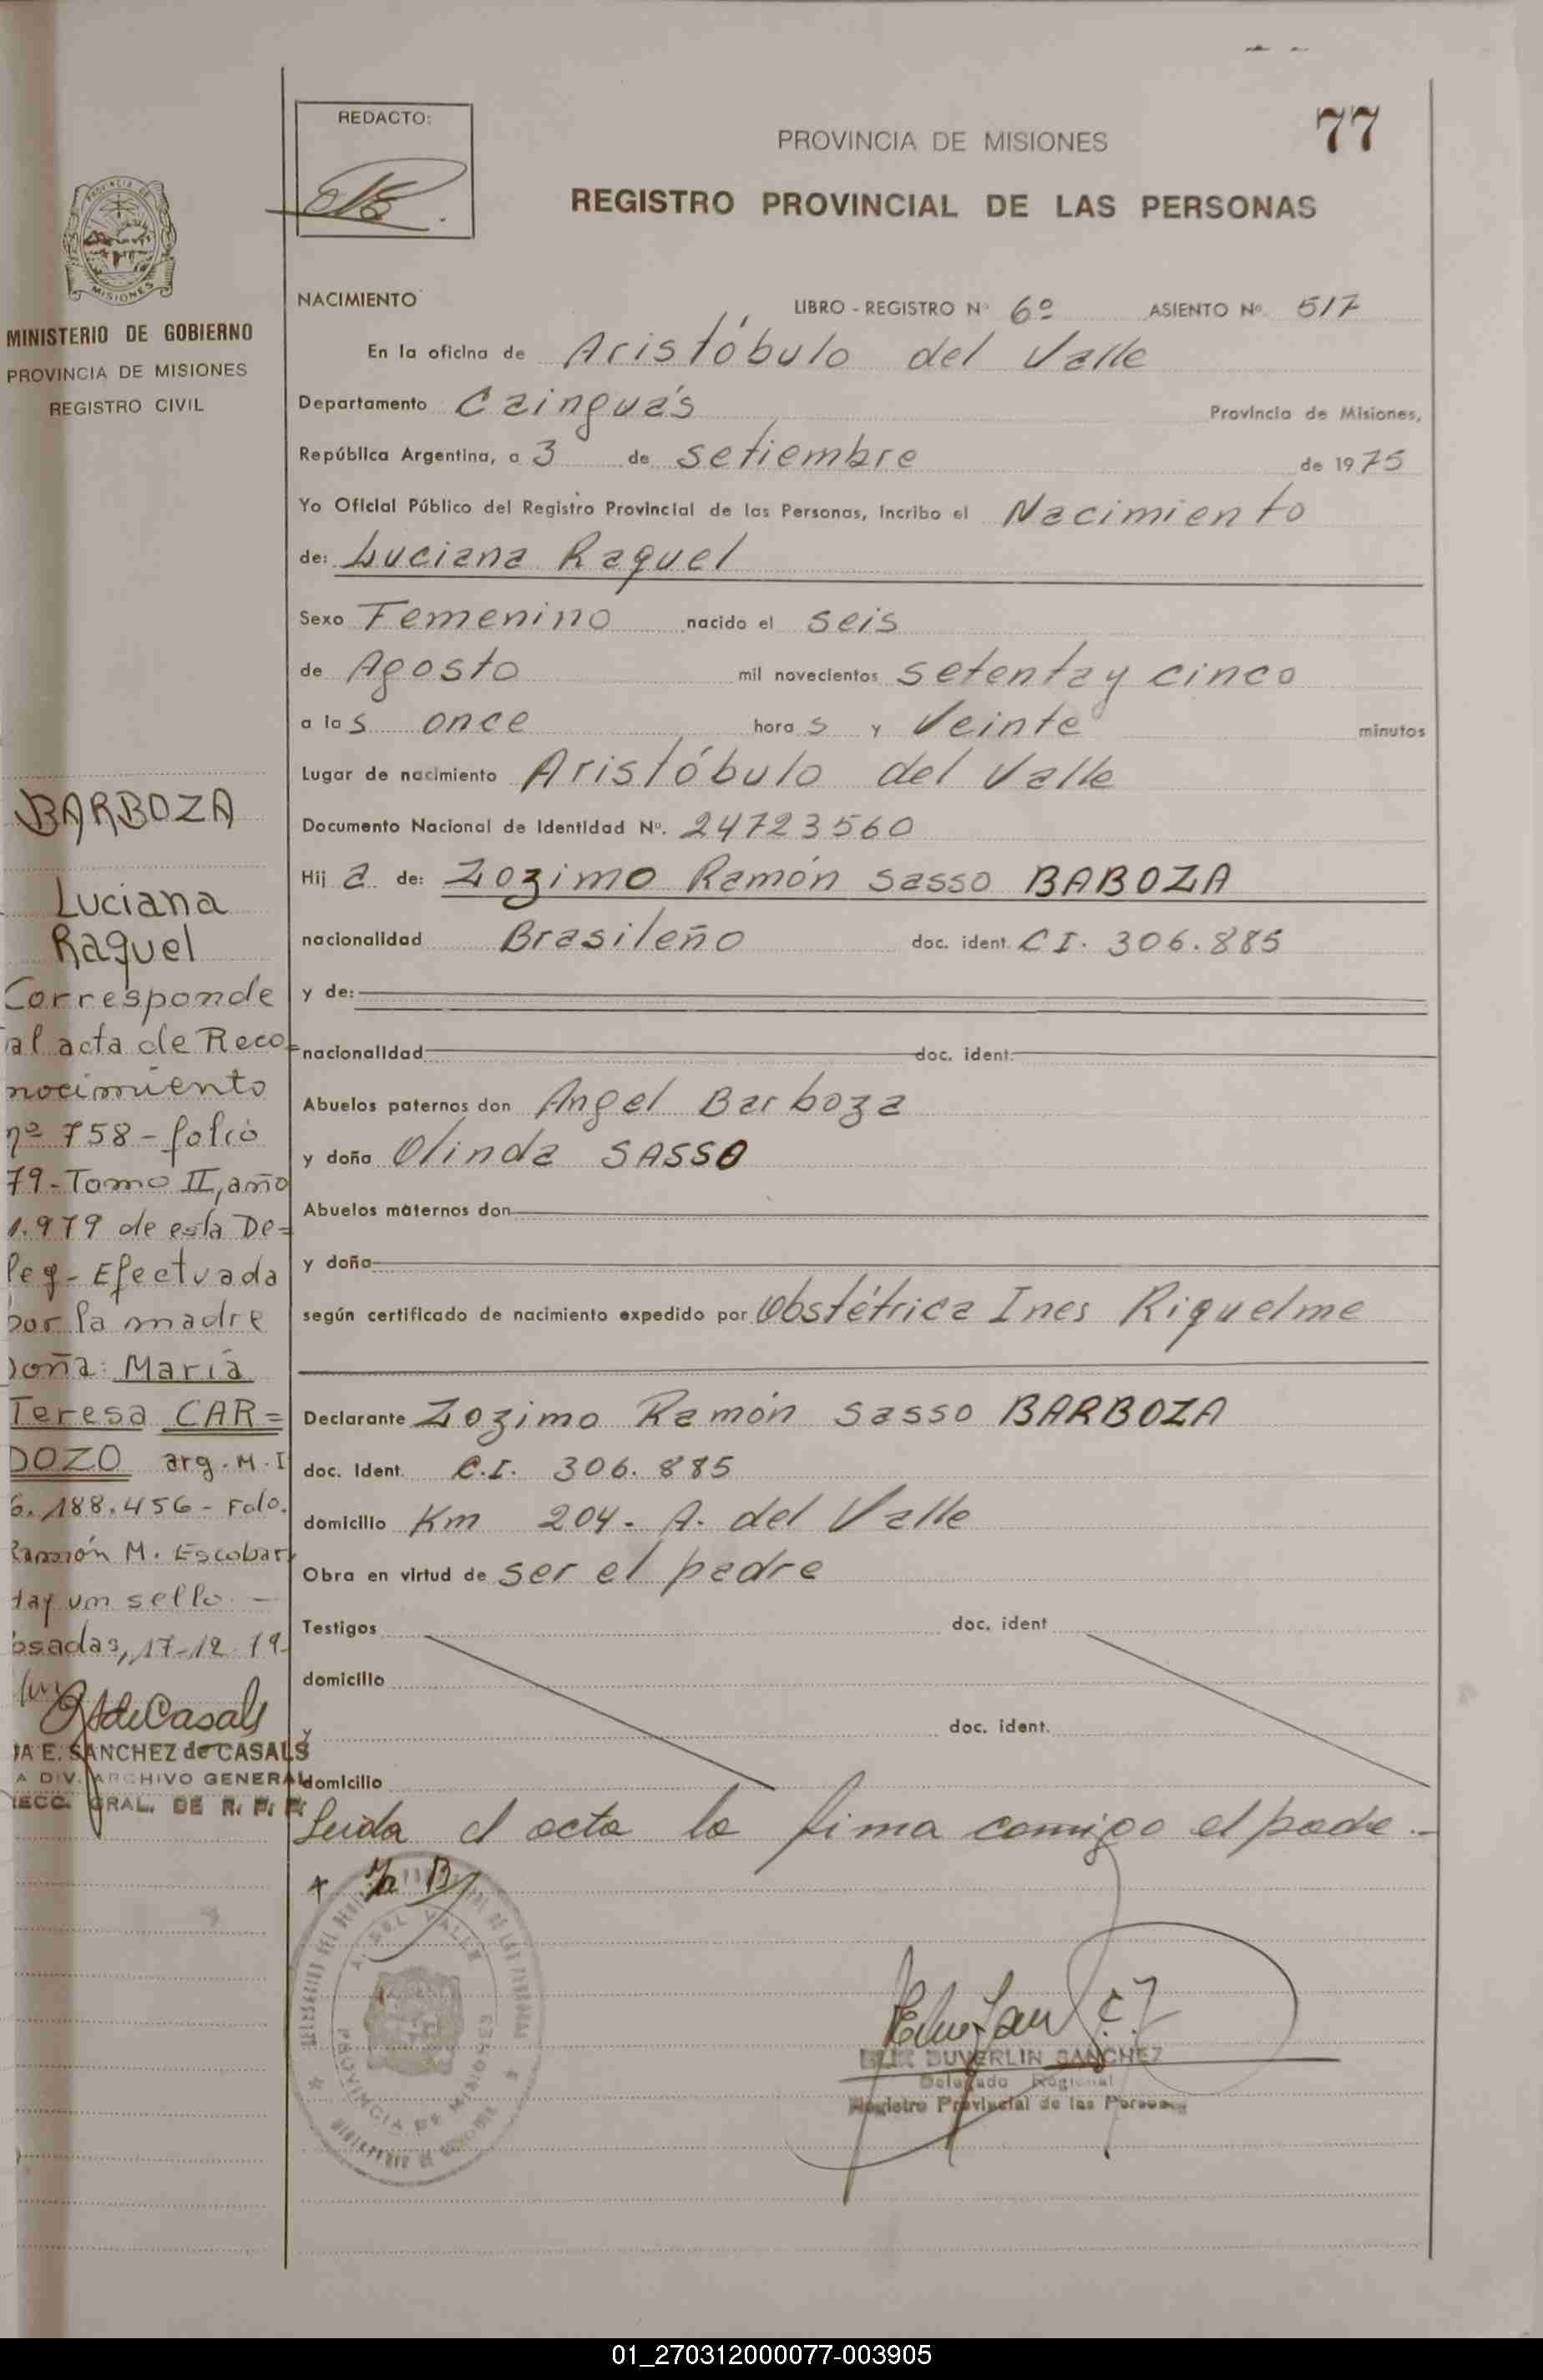 REDACTO:
77
PROVINCIA DE MISIONES
REGISTRO PROVINCIAL DE LAS PERSONAS
PROVINCIA DE
MISIONES
MINISTERIO DE GOBIERNO
PROVINCIA DE MISIONES
REGISTRO CIVIL
NACIMIENTO LIBRO - REGISTRO Nº 6º ASIENTO Nº 517
En la oficina de Aristóbulo del Valle
Departamento Cainguás Provincia de Misiones,
República Argentina, a 3 de setiembre de 1975
Yo Oficial Público del Registro Provincial de las Personas, incribo el Nacimiento
de: Luciana Raquel
Sexo Femenino nacido el seis
de Agosto mil novecientos setenta y cinco
a las once horas y veinte minutos
Lugar de nacimiento Aristóbulo del Valle
Documento Nacional de Identidad Nº. 24723560
Hija de: Zozimo Ramón Sasso BABOZA
nacionalidad Brasileño doc. ident. C I. 306.885
y de:
nacionalidad doc. ident.
Abuelos paternos don Angel Barboza
y doña Olinda SASSO
Abuelos maternos don
y doña
según certificado de nacimiento expedido por Obstétrica Ines Riquelme
Declarante Zozimo Ramón Sasso BARBOZA
doc. Ident. C.I. 306.885
domicilio Km 204- A. del Valle
Obra en virtud de ser el padre
Testigos doc. ident
domicilio
y doc. ident.
domicilio
Leida el acta la firma conmigo el padre.-
BARBOZA
Luciana
Raquel
Corresponde
al acta de Reco-
nocimiento
nº 758 - folio
79 - Tomo II, año
1.979 de esta De=
leg - Efectuada
por la madre
Doña: María
Teresa CAR=
DOZO arg. M. I
6.188.456 - Fdo.
Ramón M. Escobar
Hay un sello. -
Posadas, 17-12-79-
E. SANCHEZ de CASALS
DIV. ARCHIVO GENERAL
GRAL. DE R. P. P.
A. DEL VALLE
PROVINCIA DE MISIONES
DUVERLIN SANCHEZ
Delegado Regional
Registro Provincial de las Personas
01_270312000077-003905